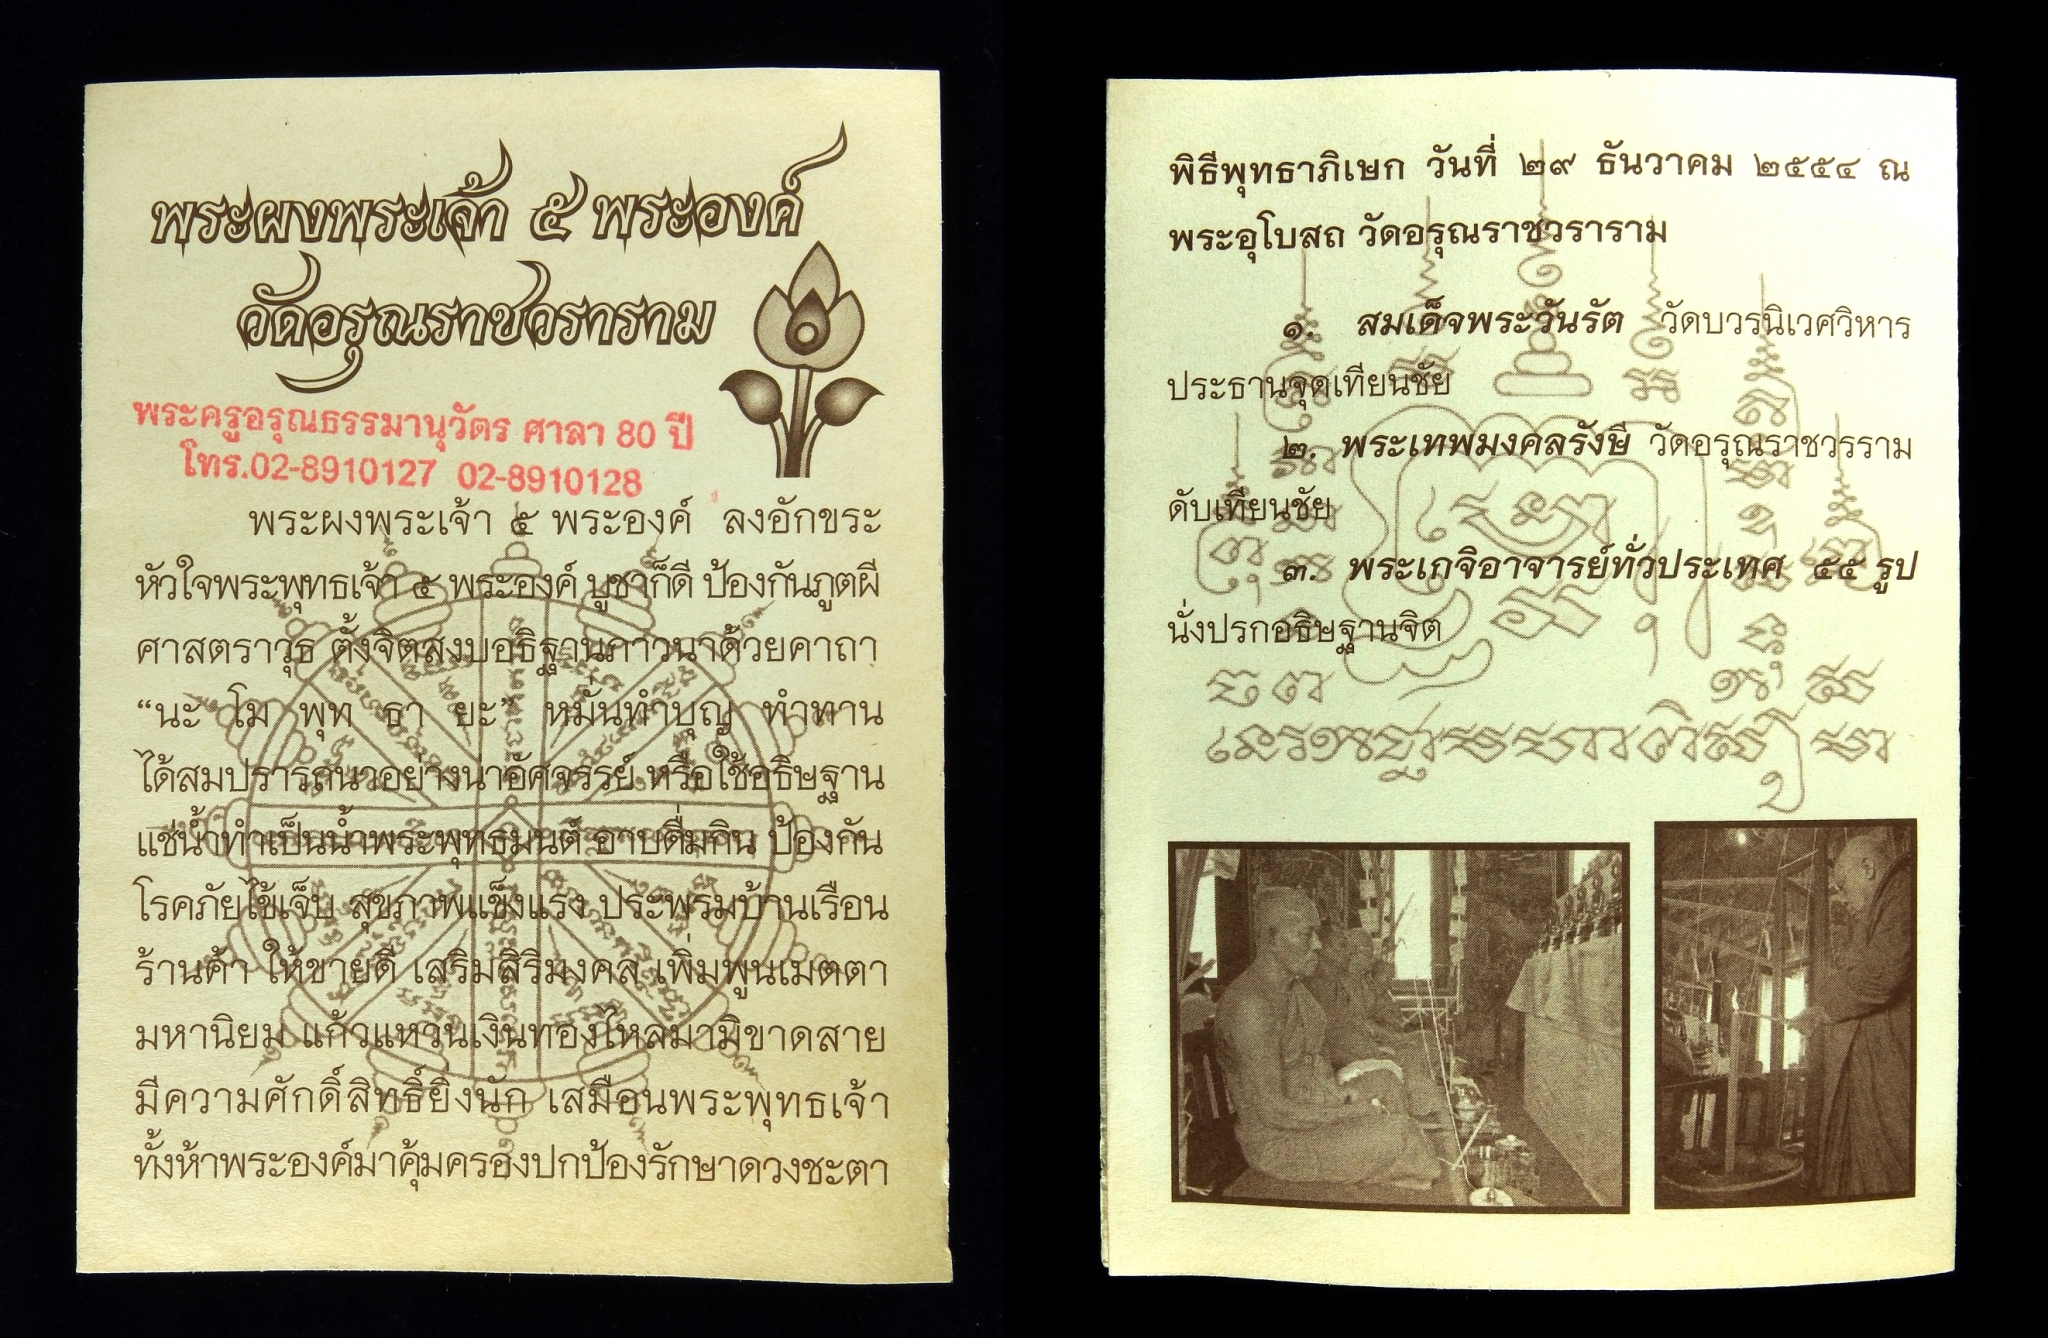 พระผงพระเจ้า ๕ พระองค์
วัดอรุณราชวราราม
พระครูอรุณธรรมานุวัตร ศาลา 80 ปี
โทร.02-8910127 02-8910128
พระผงพระเจ้า ๕ พระองค์ ลงอักขระ
หัวใจพระพุทธเจ้า ๕ พระองค์ บูชาก็ดี ป้องกันภูตผี
ศาสตราวุธ ตั้งจิตสงบอธิฐานภาวนาด้วยคาถา
“นะ โม พุท ธา ยะ” หมั่นทำบุญ ทำทาน
ได้สมปรารถนาอย่างน่าอัศจรรย์ หรือใช้อธิษฐาน
แช่น้ำทำเป็นน้ำพระพุทธมนต์ อาบดื่มกิน ป้องกัน
โรคภัยไข้เจ็บ สุขภาพแข็งแรง ประพรมบ้านเรือน
ร้านค้า ให้ขายดี เสริมสิริมงคล เพิ่มพูนเมตตา
มหานิยม แก้วแหวนเงินทองไหลมามิขาดสาย
มีความศักดิ์สิทธิ์ยิ่งนัก เสมือนพระพุทธเจ้า
ทั้งห้าพระองค์มาคุ้มครองปกป้องรักษาดวงชะตา
พิธีพุทธาภิเษก วันที่ ๒๙ ธันวาคม ๒๕๕๔ ณ
พระอุโบสถ วัดอรุณราชวราราม
๑. สมเด็จพระวันรัต วัดบวรนิเวศวิหาร
ประธานจุดเทียนชัย
๒. พระเทพมงคลรังษี วัดอรุณราชวรราม
ดับเทียนชัย
๓. พระเกจิอาจารย์ทั่วประเทศ ๕๕ รูป
นั่งปรกอธิษฐานจิต